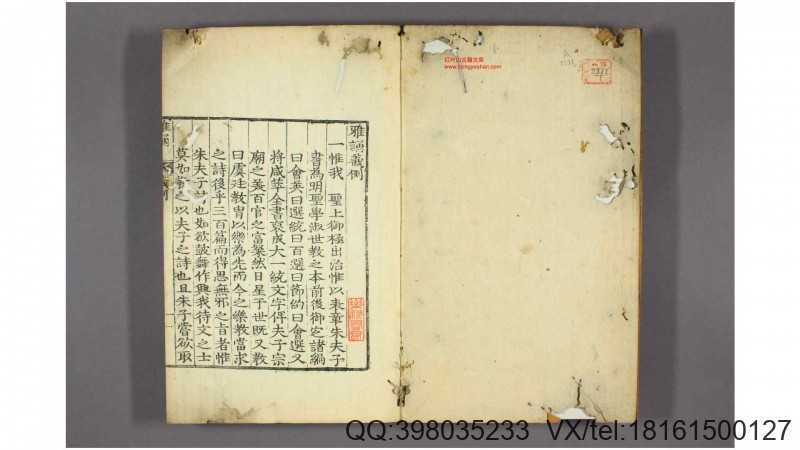 雅誦義例
一惟我 聖上御極出治惟以表章朱夫子
書為明聖學淑世教之本前後御定諸編
曰會英曰選統曰百選曰節約曰會選又
將咸萃全書裒成大一統文字俾夫子宗
廟之美百官之富粲然日星于世既又敎
曰虞廷教胄以樂為先而今之樂教當求
之詩後乎三百篇而得思無邪之旨者惟
朱夫子詩也如欲鼓舞作興我待文之士
莫如 之以夫子之詩也且朱子嘗欲取
红叶山古籍文库
QQ:398035233 VX/tel:18161500127